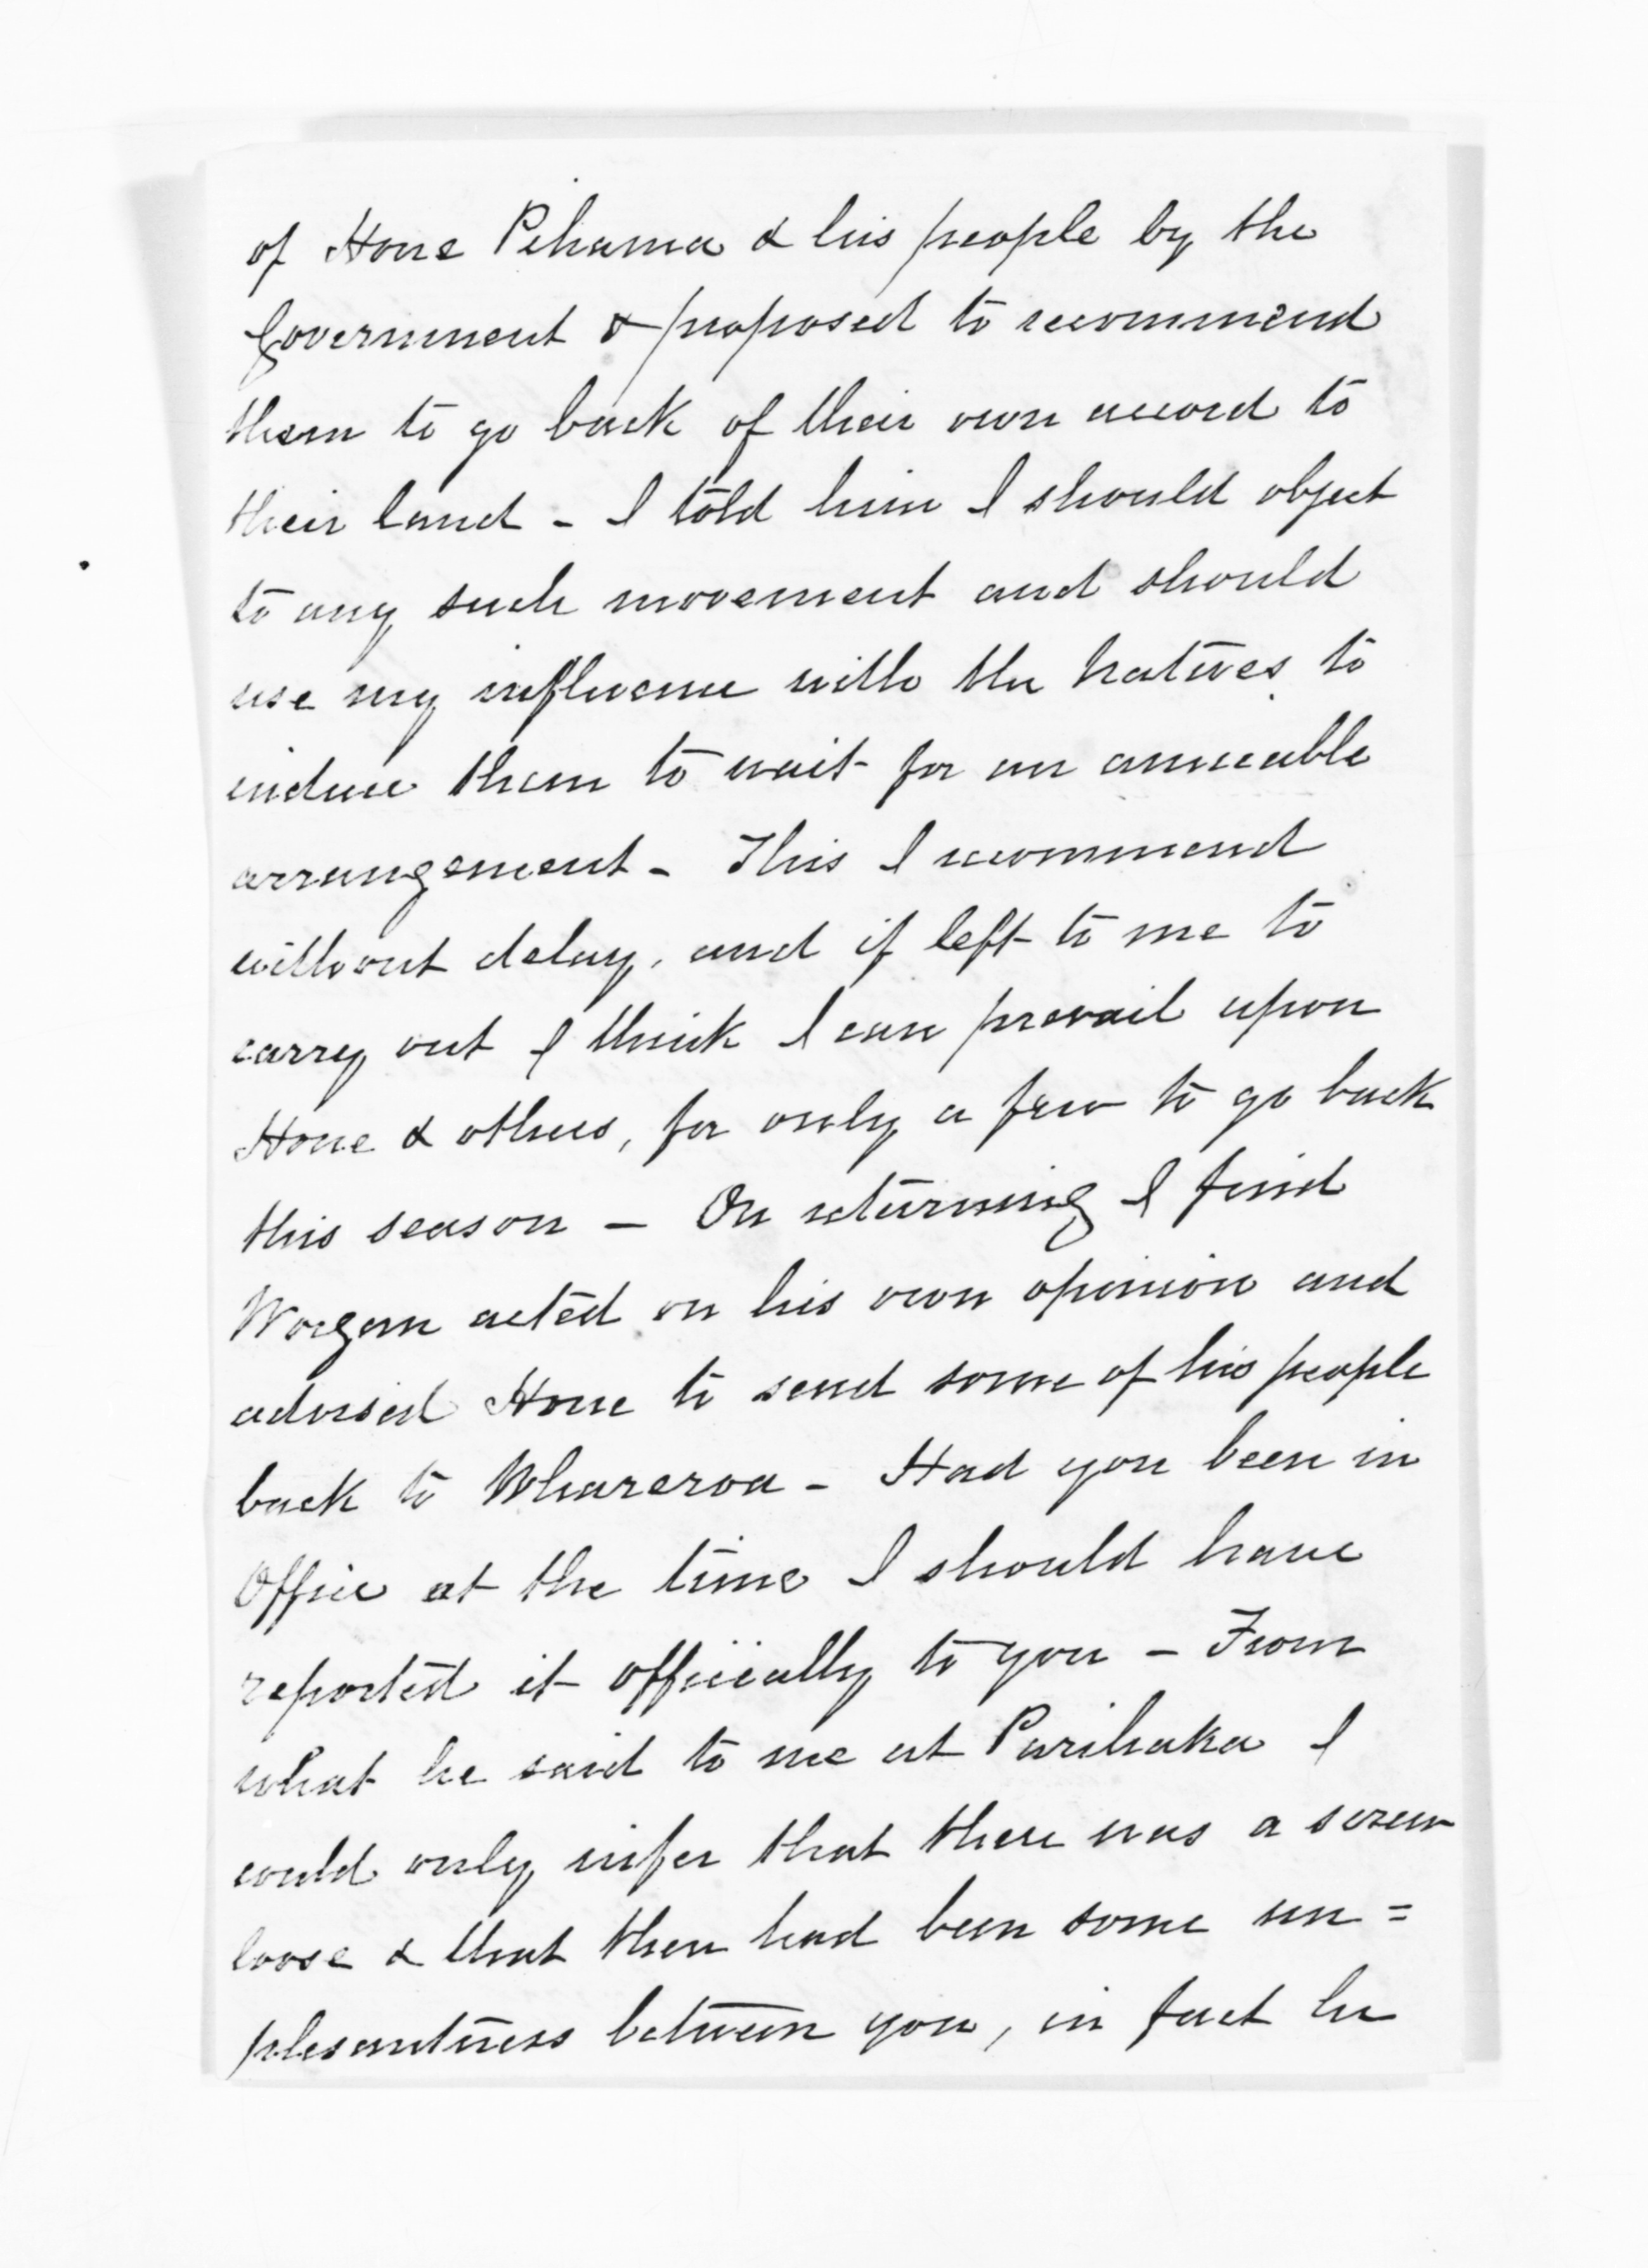 of Hone Pihama & his people by the
Government & proposed to recommend
them to go back of their own accord to
their land - I told him I should object
to any such movement and should
use my influence with the Natives to
induce them to wait for an amicable
arrangement - This I recommend
without delay, and if left to me to
carry out I think I can prevail upon
Hone & others, for only a few to go back
this season - On returning I find
Worgan acted on his own opinion and
advised Hone to send some of his people
back to Whareroa - Had you been in
Office at the time I should have
reported it officially to you - From
what he said to me at Parihaka I
could only infer that there was a screw
loose & that there had been some un=
plesantness between you, in fact he